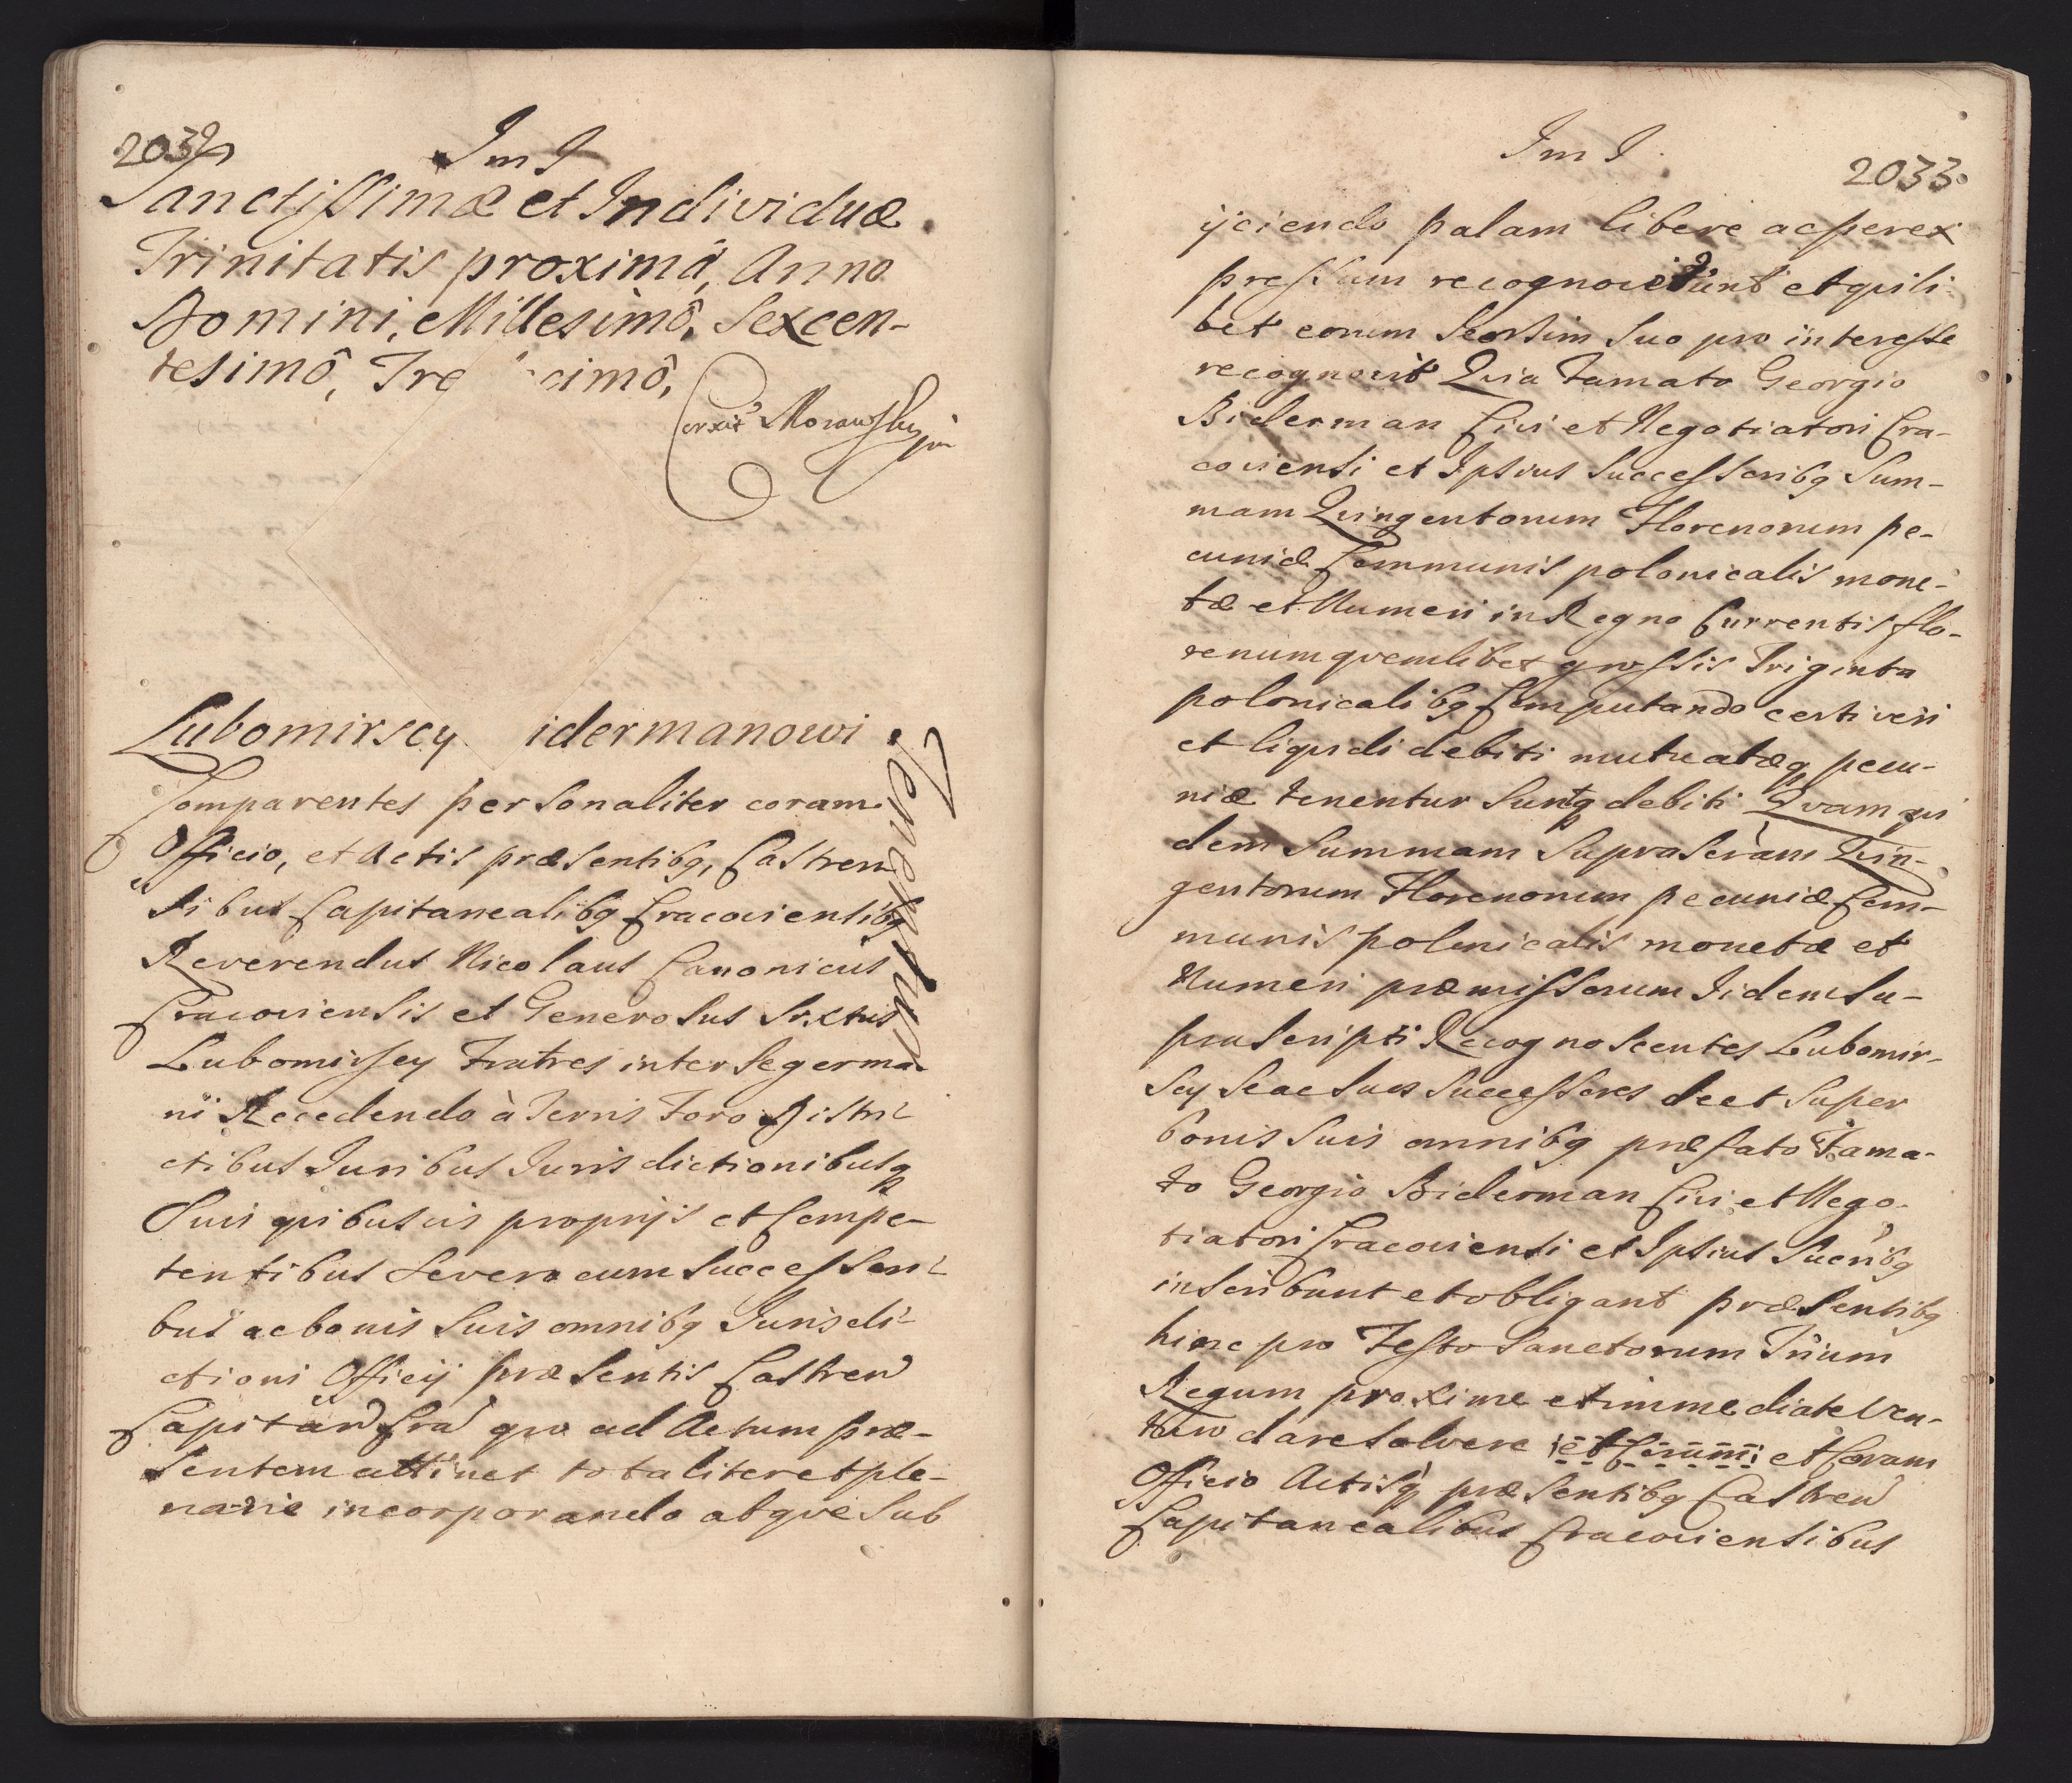 2032
Im I
Sanctissimæ et Individuæ
Trinitatis proximâ, Anno
Domini, Millesimô, Sexcen-
tesimô, Tre cimô,
Corxit Morawsky
Lubomirscy idermanowi
Comparentes personaliter coram
Officio, et Actis præsentibq, Castren
sibus Capitanealibq Cracoviensibq
Reverendus Nicolaus Canonicus
Cracoviensis et Generosus Sixtus
Lubomirscy Fratres inter se germa-
ni Recedendo à Terris Foro Distri-
ctibus Juribus Jurisdictionibusq
Suis quibusvis proprijs et Compe-
tentibus Se vero cum Successori-
bus ac bonis Suis omnibq Jurisdi-
ctioni Officij præsentis Castren
Capitan Cra quo ad Actum præ-
sentem attinet totaliter et ple-
narie incorporando atque Sub
Im I
2033
ijciendo palam libere ac per ex
pressum recognoverunt et quili-
bet eorum Seorsim Suo pro interesse
recognovit Quia Famato Georgio
Biderman Civi et Negotiatori Cra-
coviensi et Ipsius Successoribq Sum-
mam Quingentorum Florenorum pe-
cuniæ Communis polonicalis mone-
tæ et Numeri in Regno Currentis flo-
renum quemlibet grossis Triginta
polonicalibq Computando certi veri
et liquidi debiti mutuatæq pecu-
niæ tenentur Suntq debiti Quam qui
dem Summam Suprascràm Quin-
gentorum Florenorum pecuniæ Com-
munis polonicalis monetæ et
Numeri præmissorum Iidem Su-
prascripti Recognoscentes Lubomir-
scy Se ac Suos Successores de et Super
bonis Suis omnibq præfato Fama-
to Georgio Biderman Civi et Nego-
tiatori Cracoviensi et Ipsius Sucribq
inscribunt et obligant præsentibq
hinc pro Festo Sanctorum Trium
Regum proxime et immediate Ven-
turo dare Solvere et Coram
Officio Actisq præsentibq Castren
Capitanealibus Cracoviensibus